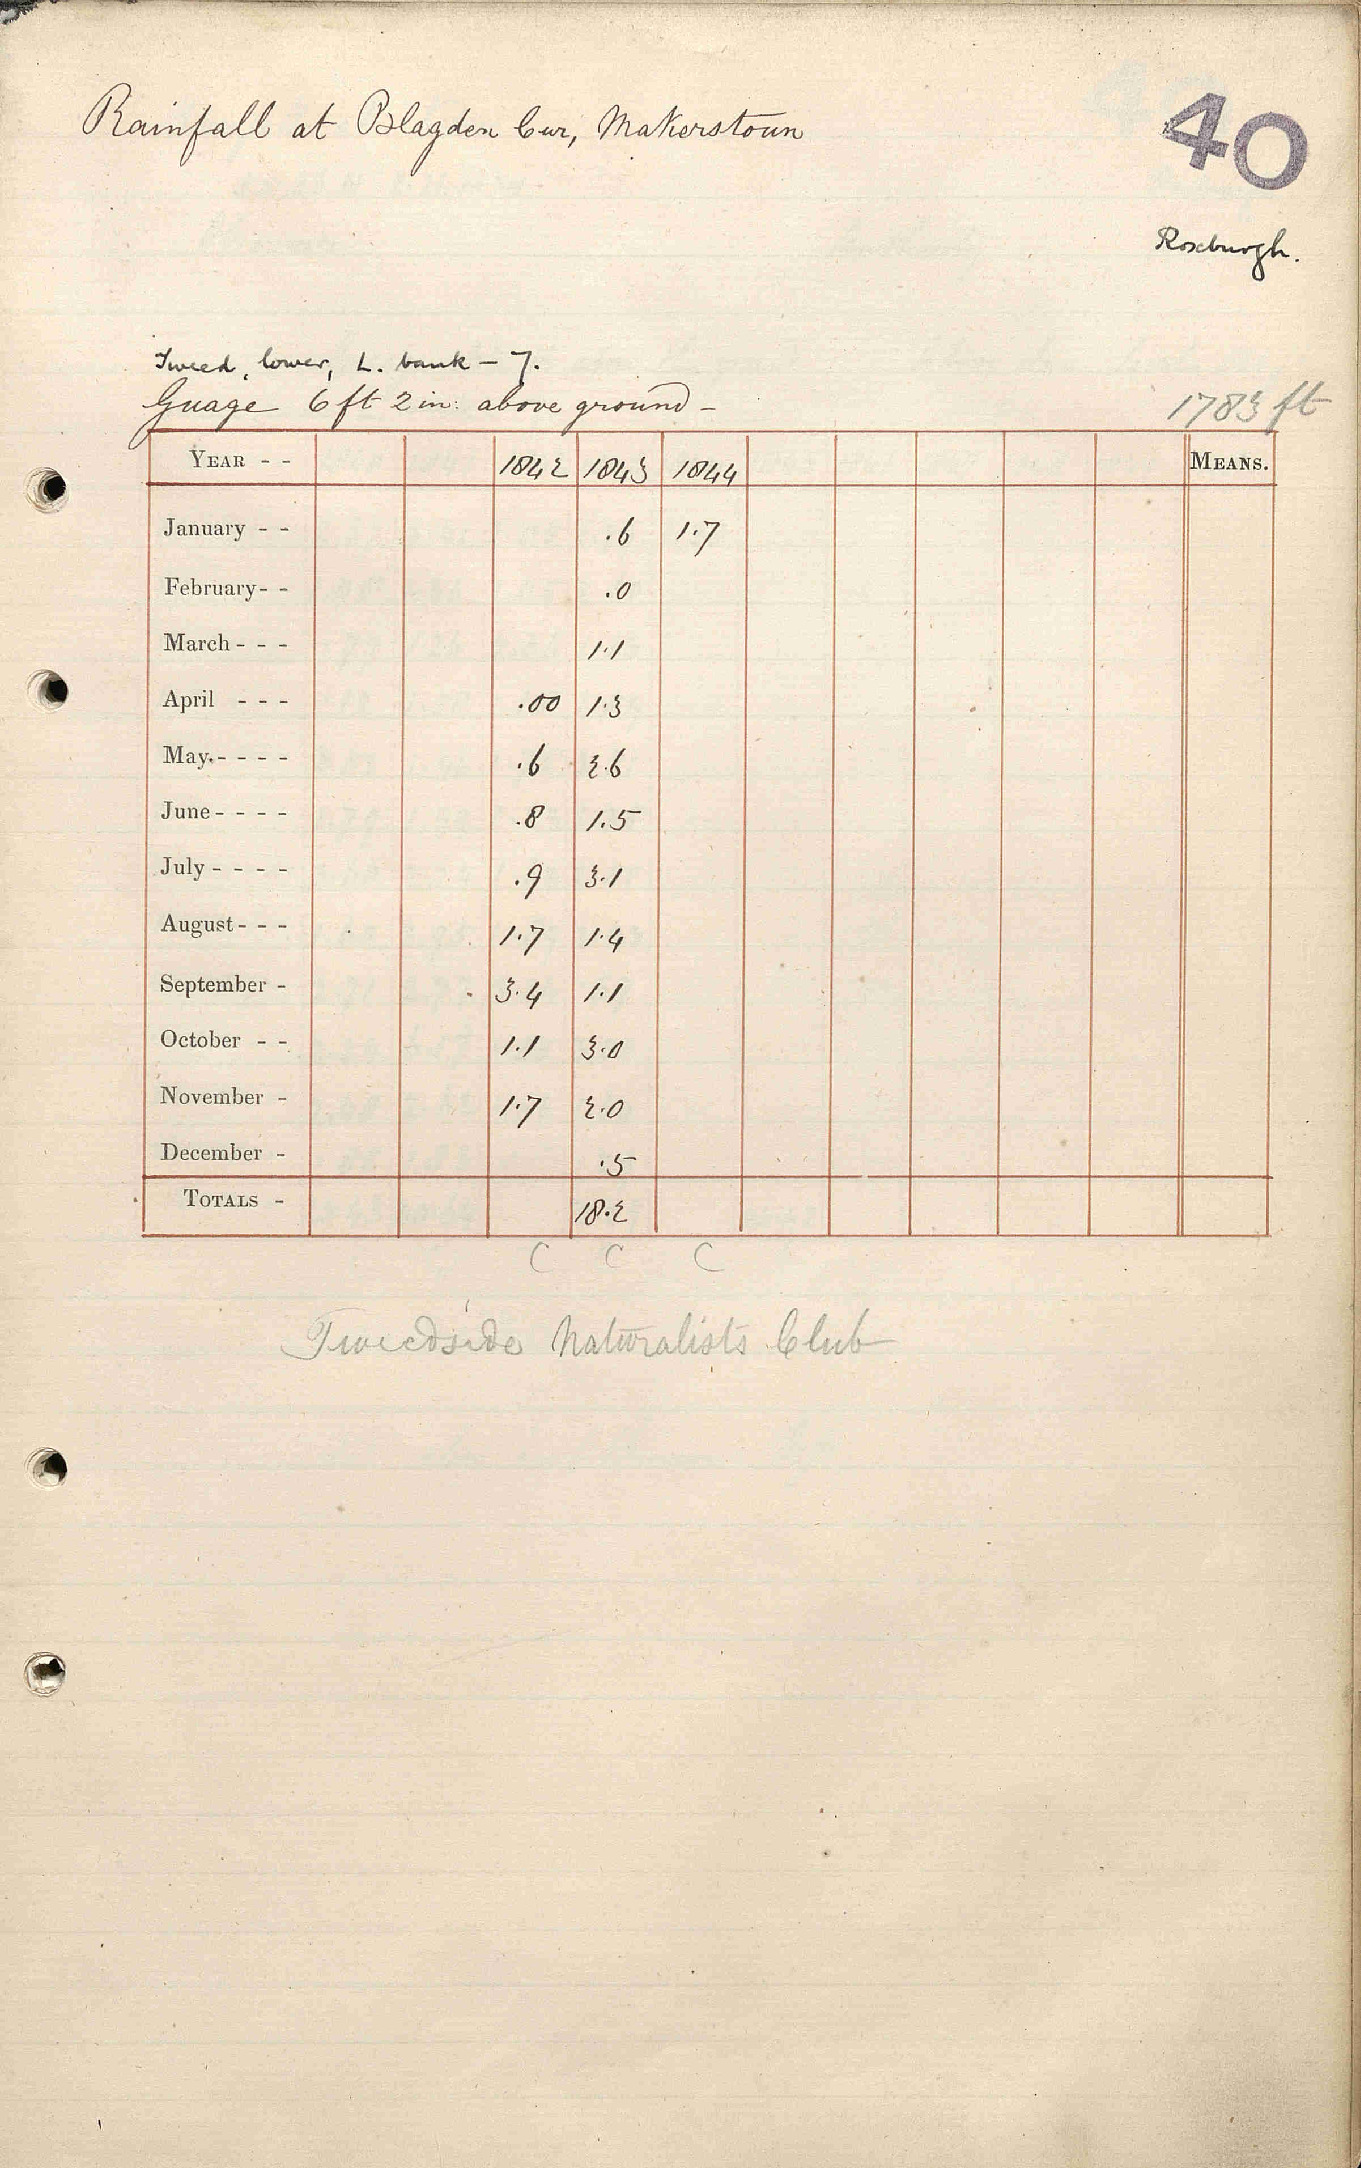 Rainfall at Blagden Cur, Makerstoun
40
Roxburgh.
Tweed, lower, L. bank – 7.
Guage 6 ft 2 in: above ground –
1783 ft
YEAR - - 1842 1843 1844 MEANS.
January - - .6 1.7
February - - .0
March - - - 1.1
April - - - .00 1.3
May. - - - - .6 2.6
June - - - - .8 1.5
July - - - - .9 3.1
August - - - 1.7 1.4
September - 3.4 1.1
October - - 1.1 3.0
November - 1.7 2.0
December - .5
TOTALS - 18.2
C C C
Tweedside Naturalists Club